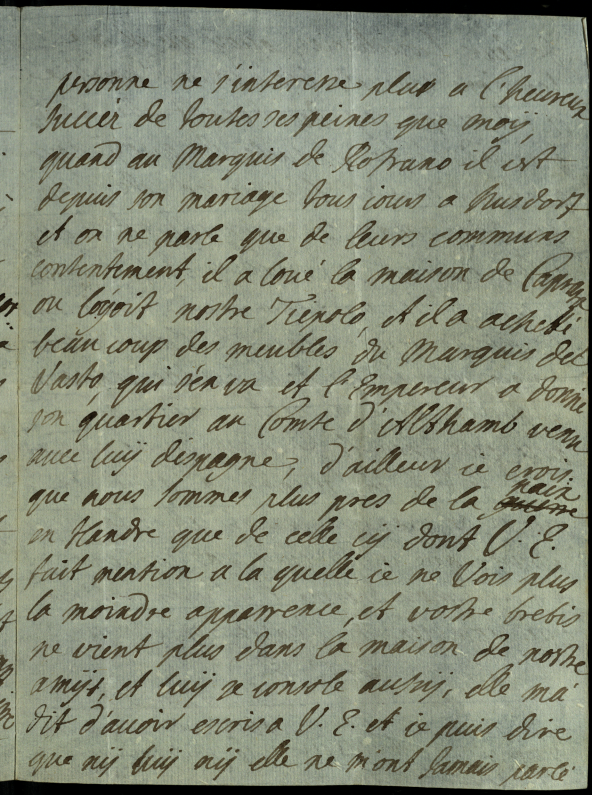 personne ne s'interesse plus a l'heureux
succés de toutes ses peines que moÿ,
quand au Marquis de Rofrano il est
depuis son mariage tous iours a Nusdorf
et on ne parle que de leurs communs
contentement, il a loué la maison de Caprara
ou logoit nostre Tiepolo, et il a acheté
beaucoup des meubles du Marquis del
Vasto, qui s'en va et l'Empereur a donné
son quartier au Comte d'Althamb venu
avec luÿ d'espagne, d'ailleur ie crois
que nous sommes plus pres de la paix
en flandre que de celle cÿ dont V. E.
fait mention a la quelle ie ne vois plus
la moindre apparrence, et vostre brebis
ne vient plus dans la maison de nostre
amÿ, et luÿ se console aussÿ, elle m'a
dit d'avoir escris a V. E. et ie puis dire
que nÿ luÿ nÿ elle ne m'ont Jamais parlé